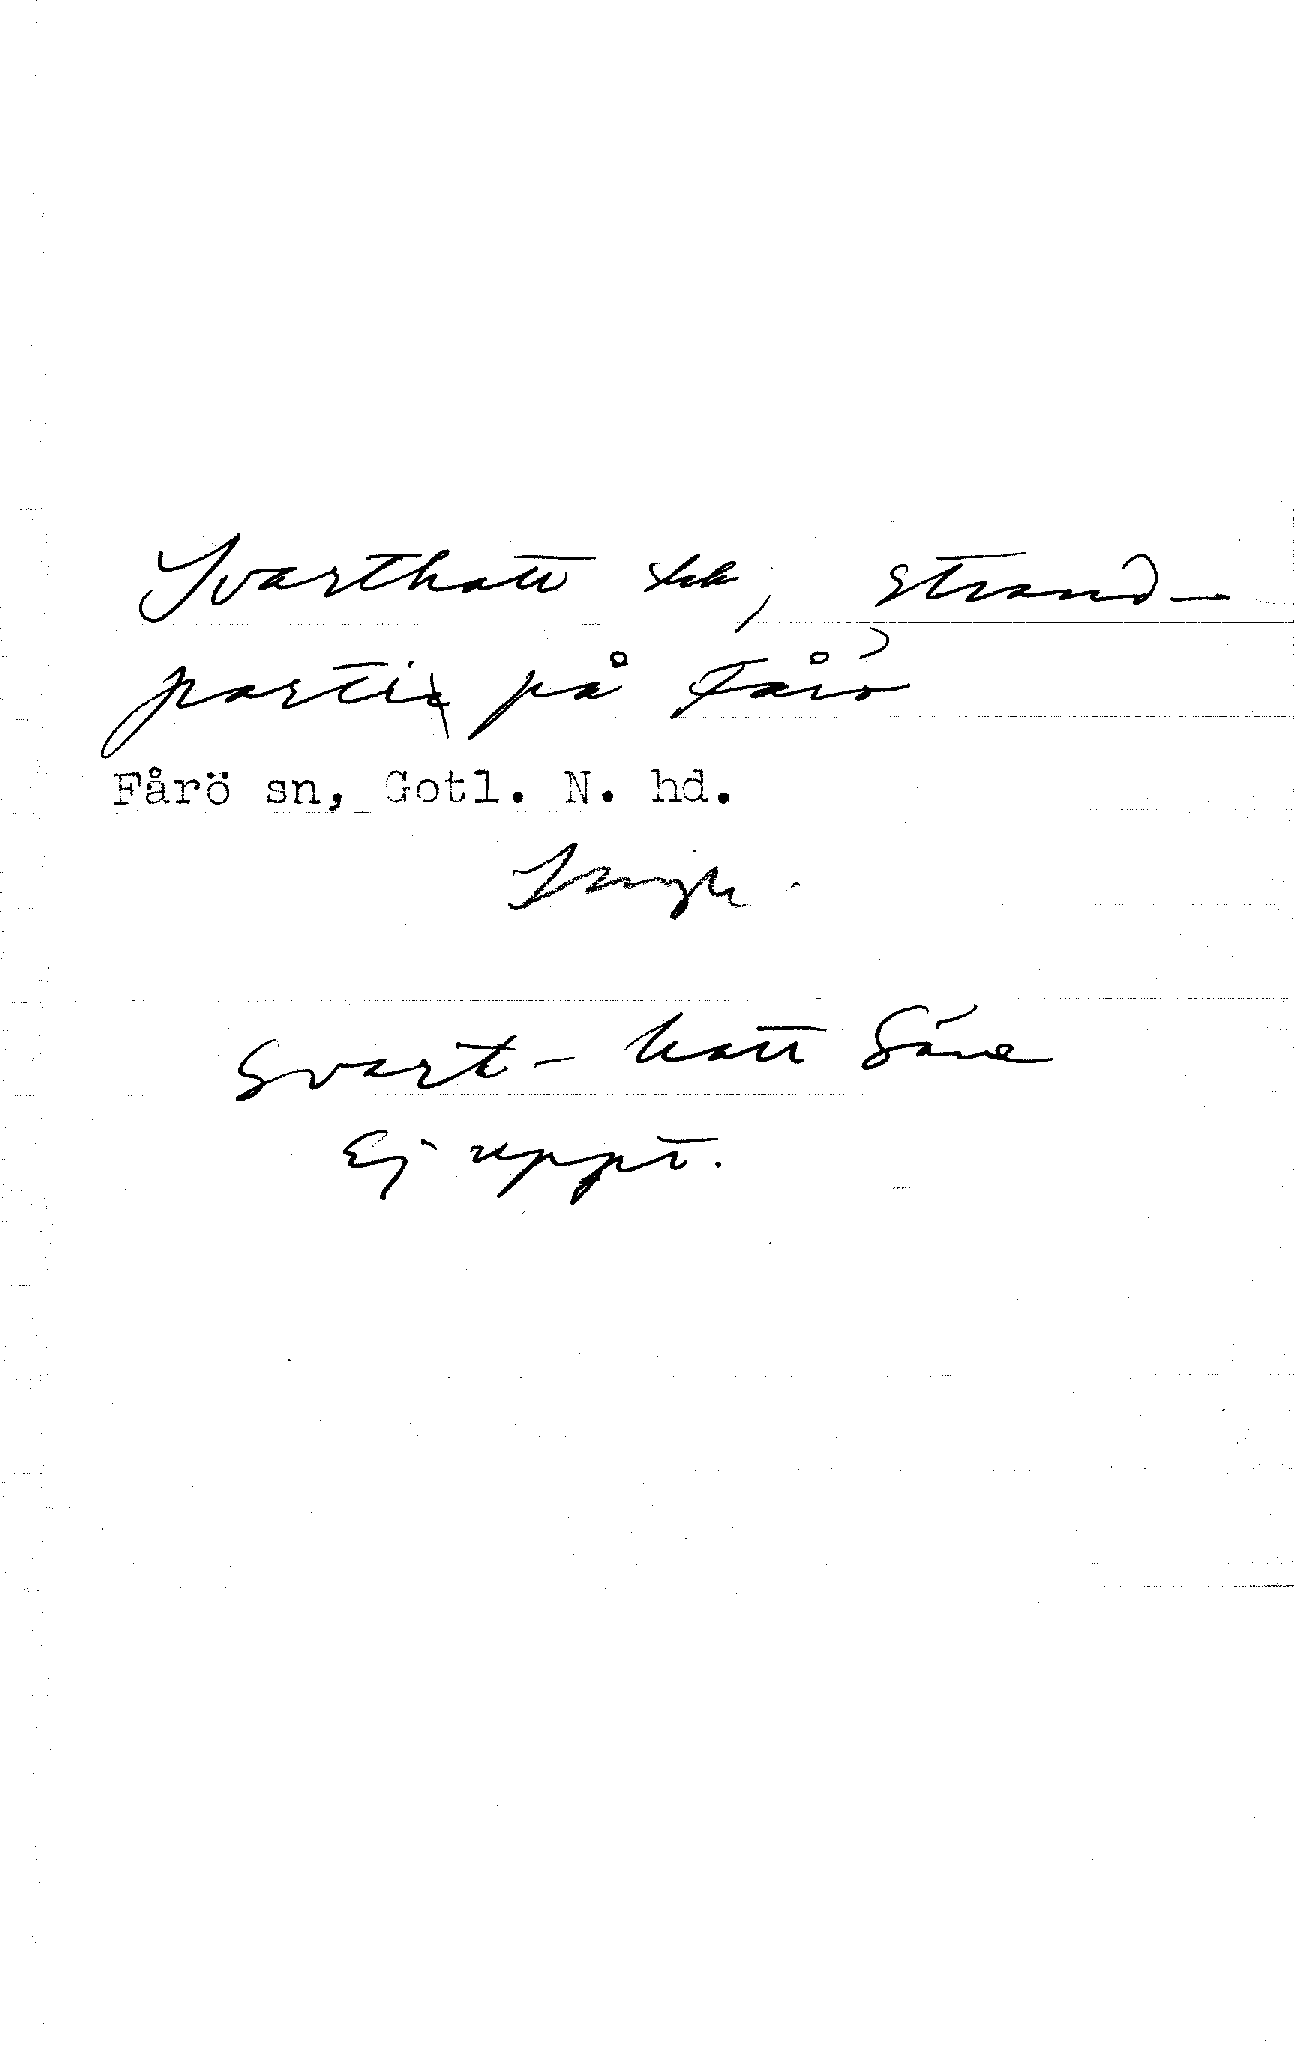 Svarthatt , strand-
parti på Fårö
Fårö sn, Gotl. N. hd.
Svart-hatt Säve
Ej uppt.